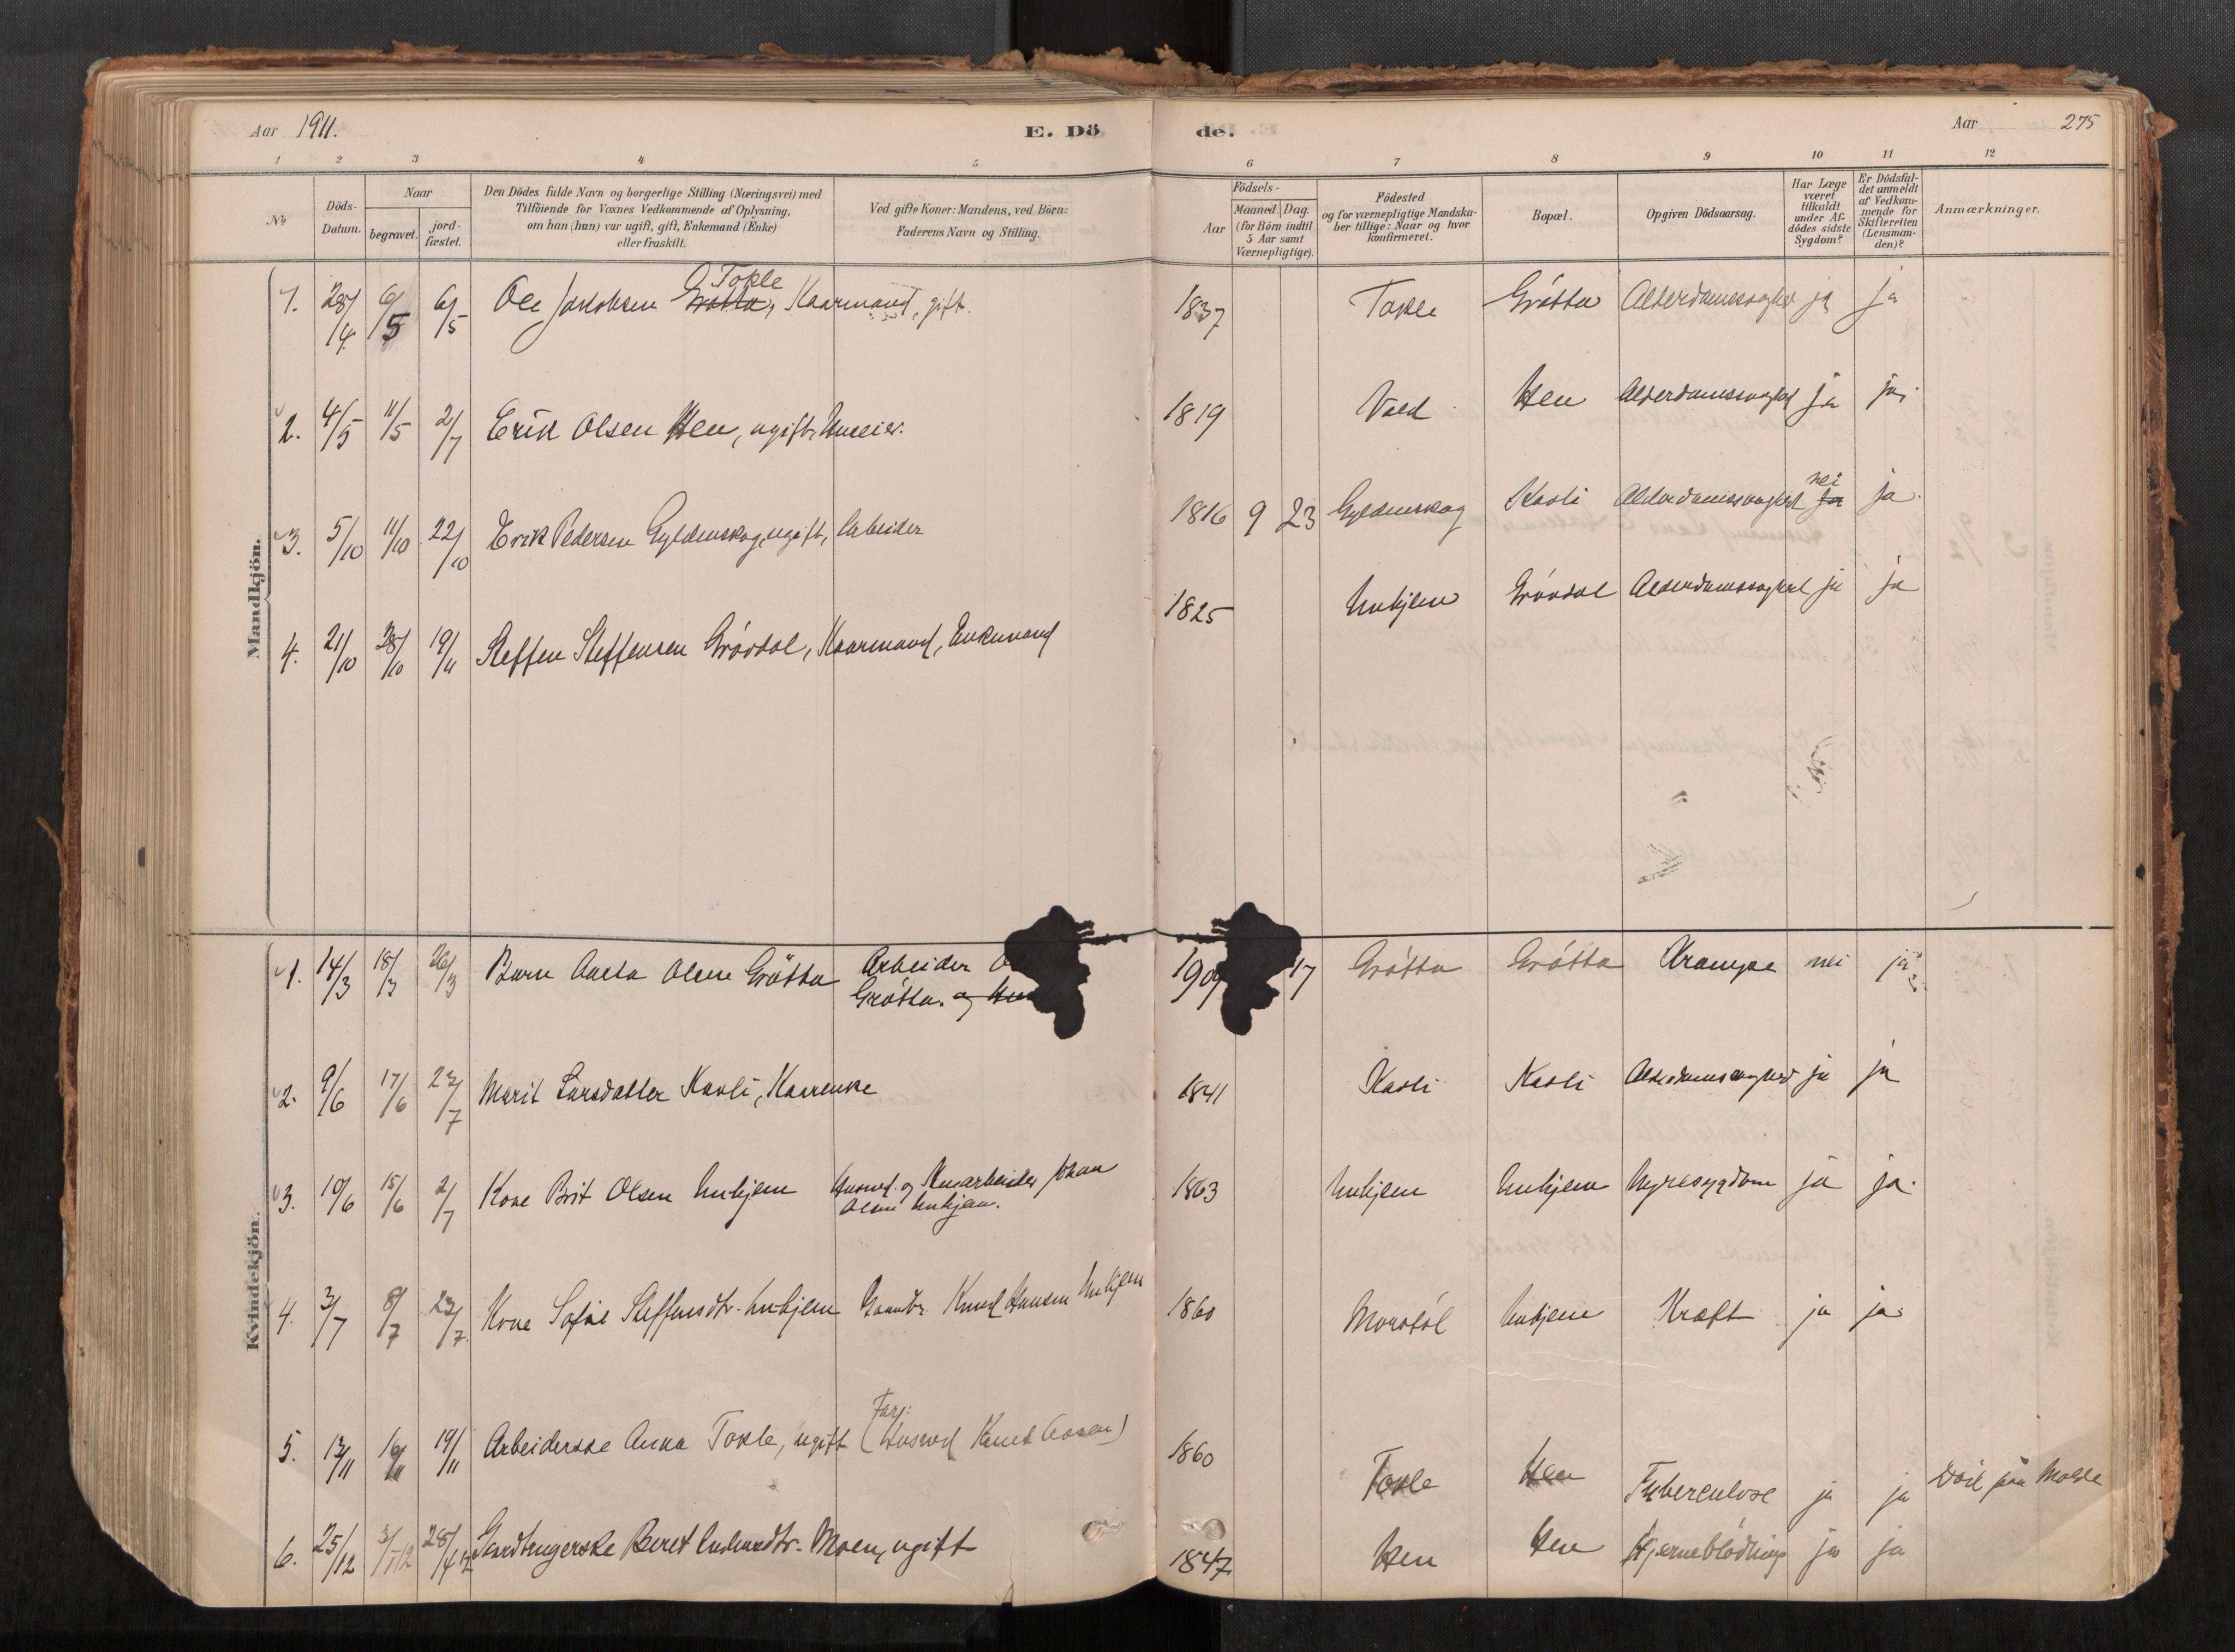 Aar 1911.
E. Dö
de.
Aar
275
1 2 3 4 5 6 7 8 9 10 11 12
No
Döds-
Datum.
Naar
begravet.
jord-
fæstet.
Den Dödes fulde Navn og borgerlige Stilling (Næringsvei) med
Tilföiende for Voxnes Vedkommende af Oplysning,
om han (hun) var ugift, gift, Enkemand (Enke)
eller fraskilt.
Ved gifte Koner: Mandens, ved Börn:
Faderens Navn og Stilling.
Födsels-
Aar
Maaned. Dag.
(for Börn indtil
5 Aar samt
Værnepligtige).
Födested
og for værnepligtige Mandska-
ber tillige: Naar og hvor
konfirmeret.
Bopæl.
Opgiven Dödsaarsag.
Har Læge
været
tilkaldt
under Af-
dödes sidste
Sygdom?
Er Dödsfal-
det anmeldt
af Vedkom-
mende for
Skifteretten
(Lensman-
den)?
Anmærkninger.
Mandkjön.
Tokle
1. 28/4 6/5 6/5 Ole Jakobsen Grötta, Kaarmand, gift. 1837 Tokle Grötta Alderdomssvaghed ja ja
2. 4/5 11/5 2/7 Erik Olsen Hen, ugift, 1819 Vold Hen Alderdomssvaghed ja ja.
nei
3. 5/10 11/10 22/10 Erik Pedersen Gyldenskog, ugift, Arbeider 1816 9 23 Gyldenskog Kavli Alderdomssvaghed ja ja.
4. 21/10 28/10 19/11 Steffen Steffensen Grövdal, Kaarmand, Enkemand 1825 Unhjem Grövdal Alderdomssvaghed ja ja
Kvindekjön.
1. 14/3 18/3 26/3 Barn Olene Grötta Arbeider 1909 17 Grötta Grötta Krampe nei ja
Grötta. og
2. 9/6 17/6 23/7 Marit Larsdatter Kavli, Kaarenke 1841 Kavli Kavli Alderdomssvaghed ja ja
3. 10/6 15/6 2/7 Kone Brit Olsen Unhjem Husmd. og Johan 1863 Unhjem Unhjem Nyresygdom ja ja.
Olsen Unhjem.
4. 3/7 8/7 23/7. Kone Sofie Steffensdtr. Unhjem Gaardbr. Knud Hansen Unhjem 1860 Morstöl Unhjem Kræft ja ja.
Far:
5. 13/11 16/11 19/11 Arbeiderske Anna Tokle, ugift (Husmd Knut Aasen) 1860 Tokle Hen Tuberculose ja ja Död paa Molde
6. 25/12 Beret Moen, ugift 1847 Hen Hen Hjerneblödning ja ja